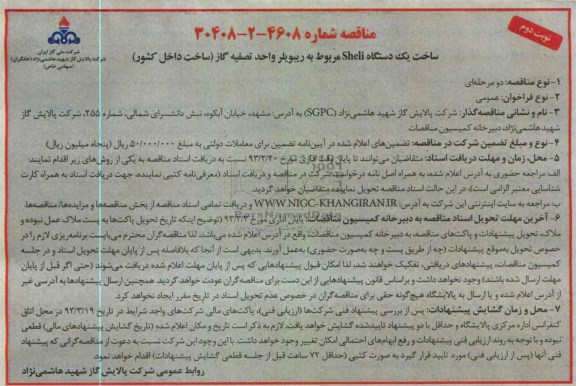 نوبت دوم
مناقصه شماره ۴۶۰۸-۲-۳۰۴۰۸
ساخت یک دستگاه Sheli مربوط به ریبویلر واحد تصفیه گاز (ساخت داخل کشور)
شرکت ملی گاز ایران
شرکت پالایش گاز شهید هاشمی‌نژاد (خانگیران)
(سهامی خاص)
۱- نوع مناقصه: دو مرحله‌ای
۲- نوع فراخوان: عمومی
۳- نام و نشانی مناقصه‌گذار: شرکت پالایش گاز شهید هاشمی‌نژاد (SGPC) به آدرس: مشهد، خیابان آبکوه، نبش دانشسرای شمالی، شماره ۲۵۵، شرکت پالایش گاز
شهید هاشمی‌نژاد، دبیرخانه کمیسیون مناقصات
۴- نوع و مبلغ تضمین شرکت در مناقصه: تضمین‌های اعلام شده در آیین‌نامه تضمین برای معاملات دولتی به مبلغ ۵۰/۰۰۰/۰۰۰ ریال (پنجاه میلیون ریال)
۵- محل، زمان و مهلت دریافت اسناد: متقاضیان می‌توانند تا پایان وقت اداری مورخ ۹۳/۲/۲۰ نسبت به دریافت اسناد مناقصه به یکی از روش‌های زیر اقدام نمایند:
الف: مراجعه حضوری به آدرس اعلام شده، به همراه اصل نامه درخواست شرکت در مناقصه و دریافت اسناد (معرفی‌نامه کتبی نماینده، جهت دریافت اسناد به همراه کارت
شناسایی معتبر الزامی است)، در این حالت اسناد مناقصه تحویل نماینده متقاضیان خواهد گردید.
ب: مراجعه به سایت اینترنتی این شرکت به آدرس: WWW.NIGC-KHANGIRAN.IR و دریافت تمامی اسناد مناقصه از بخش مناقصه‌ها و مزایده‌ها/ مناقصه‌ها.
۶- آخرین مهلت تحویل اسناد مناقصه به دبیرخانه کمیسیون مناقصات: پایان وقت اداری مورخ (توضیح اینکه تاریخ تحویل پاکت‌ها به پست ملاک عمل نبوده و
ملاک، تحویل پیشنهادات و پاکت‌های مناقصه، به دبیرخانه کمیسیون مناقصات، واقع در آدرس اعلام شده می‌باشد. لذا مناقصه‌گران محترم می‌بایست برنامه‌ریزی لازم را در
خصوص تحویل به‌موقع پیشنهادات (چه از طریق پست و چه به‌صورت حضوری) به‌عمل آورند. بدیهی است از آنجا که بلافاصله پس از پایان مهلت تحویل اسناد و در جلسه
کمیسیون مناقصات، پیشنهادهای دریافتی، تفکیک خواهند شد، لذا امکان قبول پیشنهادهایی که پس از پایان مهلت اعلام شده دریافت می‌شوند (حتی اگر قبل از پایان
مهلت ارسال شده باشند) وجود نخواهد داشت و براساس قانون پیشنهادهایی از این دست برای مناقصه‌گران عودت خواهد گردید. همچنین ارسال پیشنهادها به آدرسی غیر
از آدرس اعلام شده و یا ارسال به پالایشگاه هیچ‌گونه حقی برای مناقصه‌گران در خصوص عدم تحویل اسناد در تاریخ مقرر ایجاد نخواهد کرد.
۷- محل و زمان گشایش پیشنهادات: پس از بررسی پیشنهاد فنی شرکت‌ها (ارزیابی فنی)، پاکت‌های مالی شرکت‌های واجد شرایط در تاریخ ۹۳/۳/۱۹ در محل اتاق
کنفرانس اداره مرکزی پالایشگاه و حداقل با دو پیشنهاد تاییدشده گشایش خواهد یافت. لازم به ذکر است تاریخ و مکان اعلام شده (تاریخ گشایش پیشنهادهای مالی) قطعی
نبوده و با توجه به روند ارزیابی فنی پیشنهادات و رفع ابهام‌های احتمالی امکان تغییر وجود خواهد داشت. با این وجود این شرکت نسبت به دعوت از مناقصه‌گرانی که پیشنهاد
فنی آنها (پس از ارزیابی فنی) مورد تایید قرار گیرد به صورت کتبی (حداقل ۷۲ ساعت قبل از جلسه قطعی گشایش پیشنهادات) اقدام خواهد نمود.
روابط عمومی شرکت پالایش گاز شهید هاشمی‌نژاد